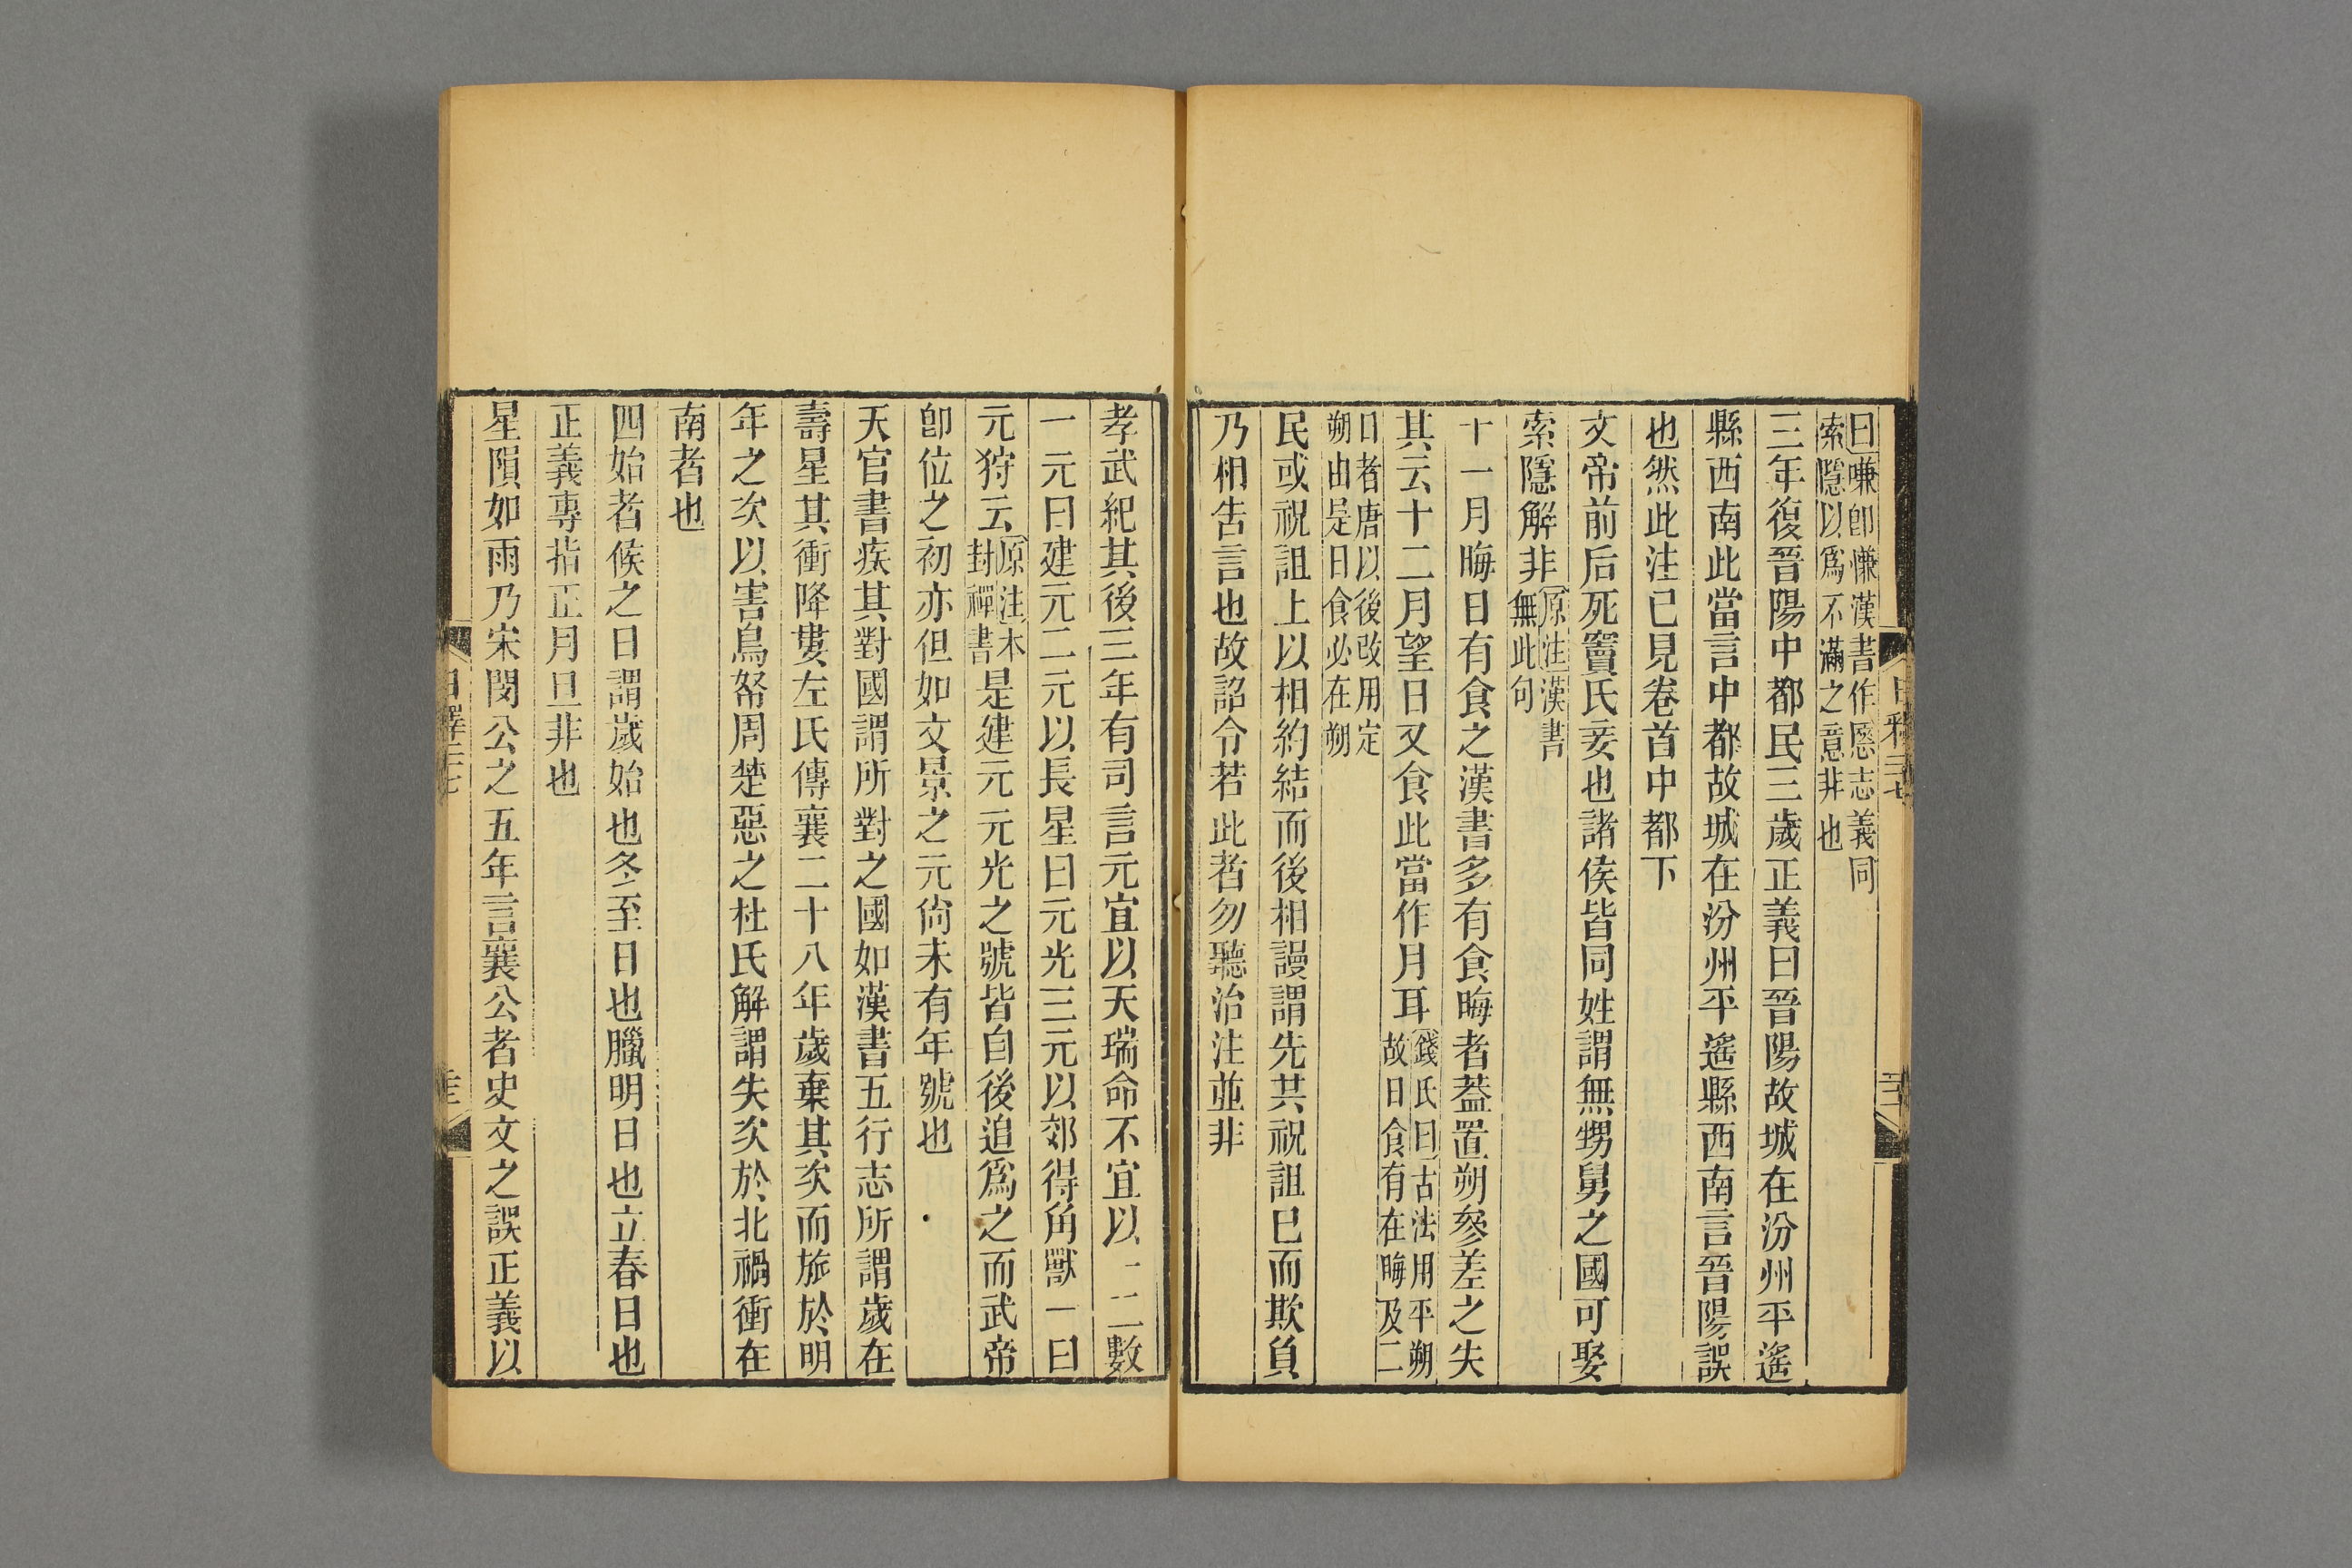 曰嗛卽慊漢書作愿志義同
索隱以爲不滿之意非也
三年復晉陽中都民三歲正義曰晉陽故城在汾州平遙
縣西南此當言中都故城在汾州平遙縣西南言晉陽誤
也然此注已見卷首中都下
文帝前后死竇氏妾也諸侯皆同姓謂無甥舅之國可娶
索隱解非原注漢書
無此句
十一月晦日有食之漢書多有食晦者蓋置朔參差之失
其云十二月望日又食此當作月耳錢氏曰古法用平朔
故日食有在晦及二
日者唐以後改用定
朔由是日食必在朔
民或祝詛上以相約結而後相謾謂先共祝詛已而欺負
乃相告言也故詔令若此者勿聽治注並非
孝武紀其後三年有司言元宜以天瑞命不宜以一二數
一元曰建元二元以長星曰元光三元以郊得角獸一曰
元狩云原注本
封禪書是建元元光之號皆自後追爲之而武帝
卽位之初亦但如文景之元尙未有年號也
天官書疾其對國謂所對之國如漢書五行志所謂歲在
壽星其衝降婁左氏傳襄二十八年歲棄其次而旅於明
年之次以害鳥帑周楚惡之杜氏解謂失次於北禍衝在
南者也
四始者候之日謂歲始也冬至日也臘明日也立春日也
正義專指正月旦非也
星隕如雨乃宋閔公之五年言襄公者史文之誤正義以